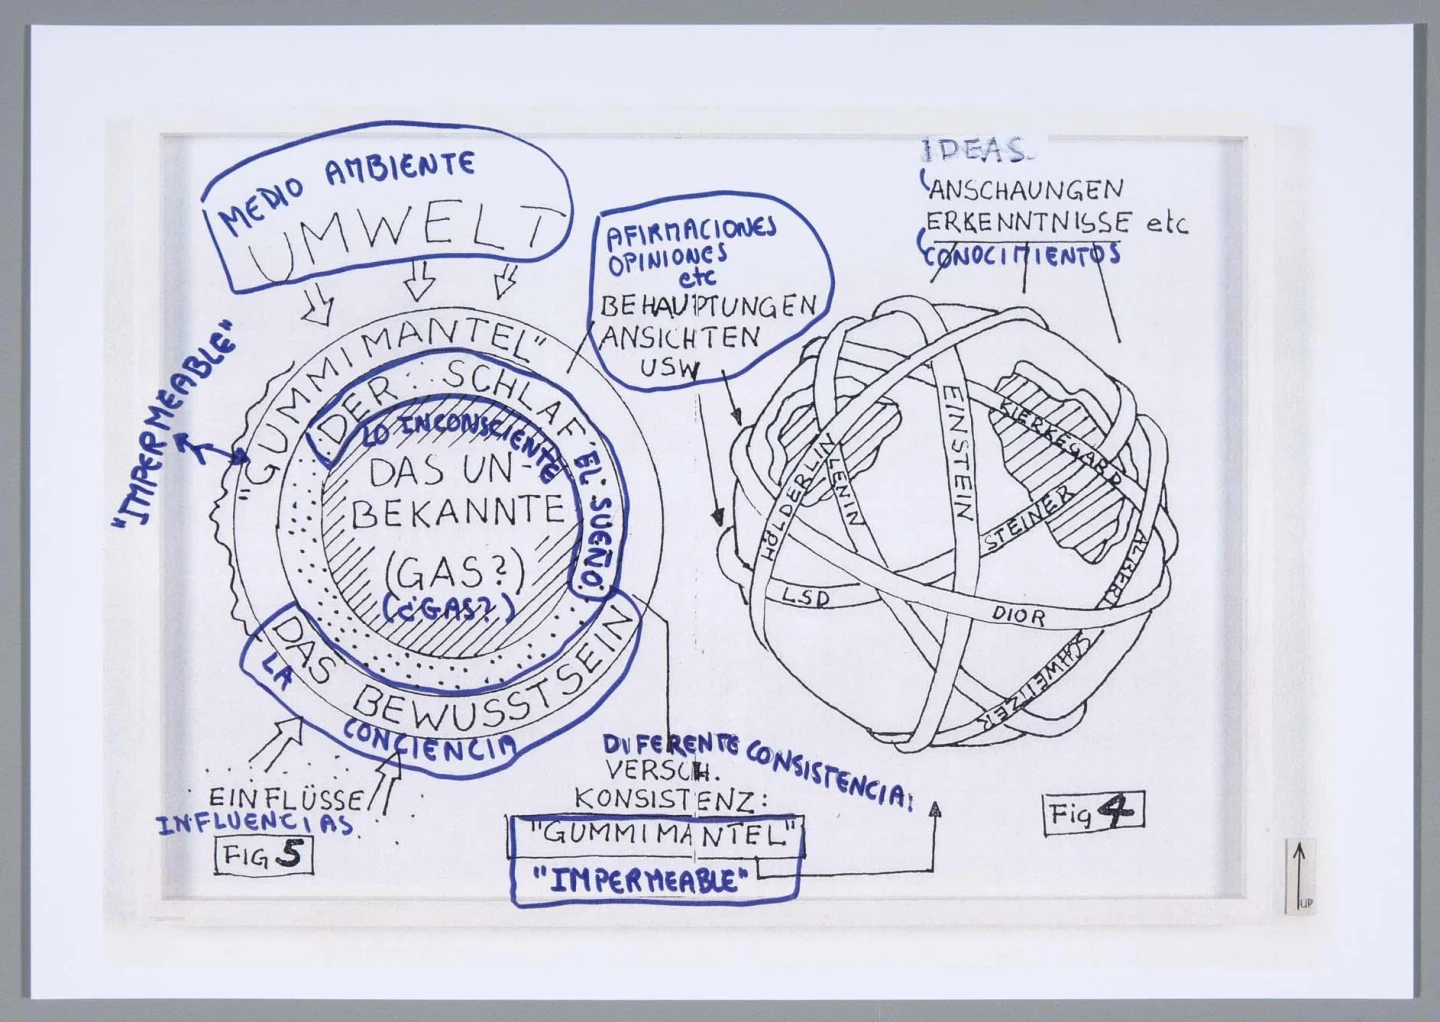 MEDIO AMBIENTE
UMWELT
"IMPERMEABLE"
"GUMMIMANTEL"
DER SCHLAF
EL SUEÑO
LO INCONSCIENTE
DAS UN-
BEKANNTE
(GAS?)
(¿GAS?)
DAS BEWUSSTSEIN
LA CONCIENCIA
EINFLÜSSE
INFLUENCIAS
FIG 5
AFIRMACIONES
OPINIONES
etc
BEHAUPTUNGEN
ANSICHTEN
USW
DIFERENTE CONSISTENCIA:
VERSCH.
KONSISTENZ:
"GUMMIMANTEL"
"IMPERMEABLE"
IDEAS
ANSCHAUNGEN
ERKENNTNISSE etc
CONOCIMIENTOS
HÖLDERLIN
LENIN
EINSTEIN
KIERKEGARD
STEINER
LSD
DIOR
ALBERT
SCHWEITZER
Fig 4
UP